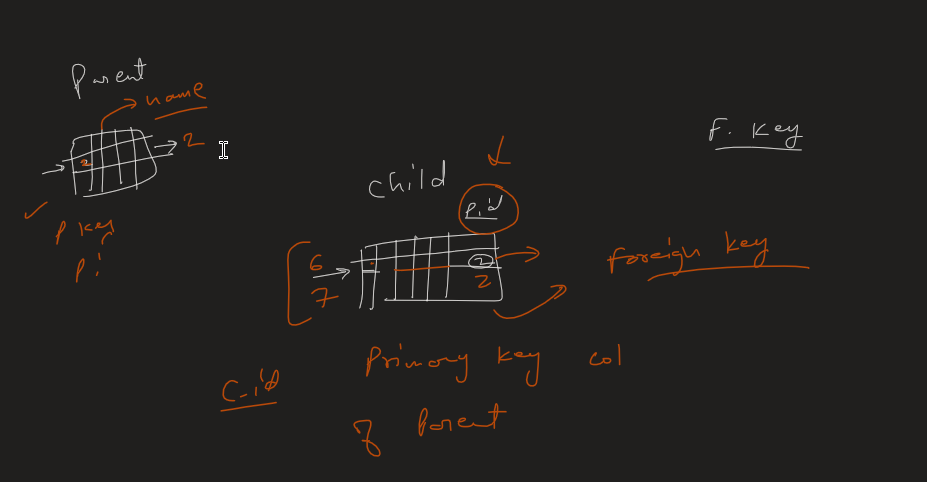 Parent
name
2
2
P key
P.i
F. Key
child
P.id
6
2
7
2
Foreign key
Primary key col
of Parent
C-id